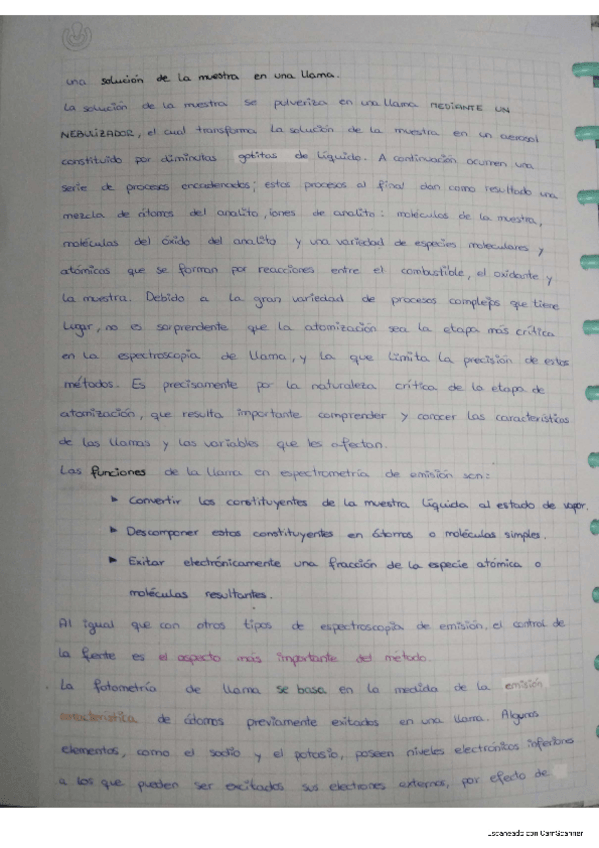 una solución de la muestra en una llama.
La solución de la muestra se pulveriza en una llama MEDIANTE UN
NEBULIZADOR, el cual transforma la solución de la muestra en un aerosol
constituido por diminutas gotitas de líquido. A continuación ocurren una
serie de procesos encadenados; estos procesos al final dan como resultado una
mezcla de átomos del analito, iones de analito: moléculas de la muestra,
moléculas del óxido del analito y una variedad de especies moleculares y
atómicas que se forman por reacciones entre el combustible, el oxidante y
la muestra. Debido a la gran variedad de procesos complejos que tiene
lugar, no es sorprendente que la atomización sea la etapa más crítica
en la espectroscopia de llama, y la que limita la precisión de estos
métodos. Es precisamente por la naturaleza crítica de la etapa de
atomización, que resulta importante comprender y conocer las características
de las llamas y las variables que les afectan.
Las funciones de la llama en espectrometría de emisión son:
➤ Convertir los constituyentes de la muestra líquida al estado de vapor.
➤ Descomponer estos constituyentes en átomos o moléculas simples.
➤ Exitar electrónicamente una fracción de la especie atómica o
moléculas resultantes.
Al igual que con otros tipos de espectroscopia de emisión, el control de
la fuente es el aspecto más importante del método.
La fotometría de llama se basa en la medida de la emisión
característica de átomos previamente exitados en una llama. Algunos
elementos, como el sodio y el potasio, poseen niveles electrónicos inferiores
a los que pueden ser excitados sus electrones externos, por efecto de
Escaneado con CamScanner